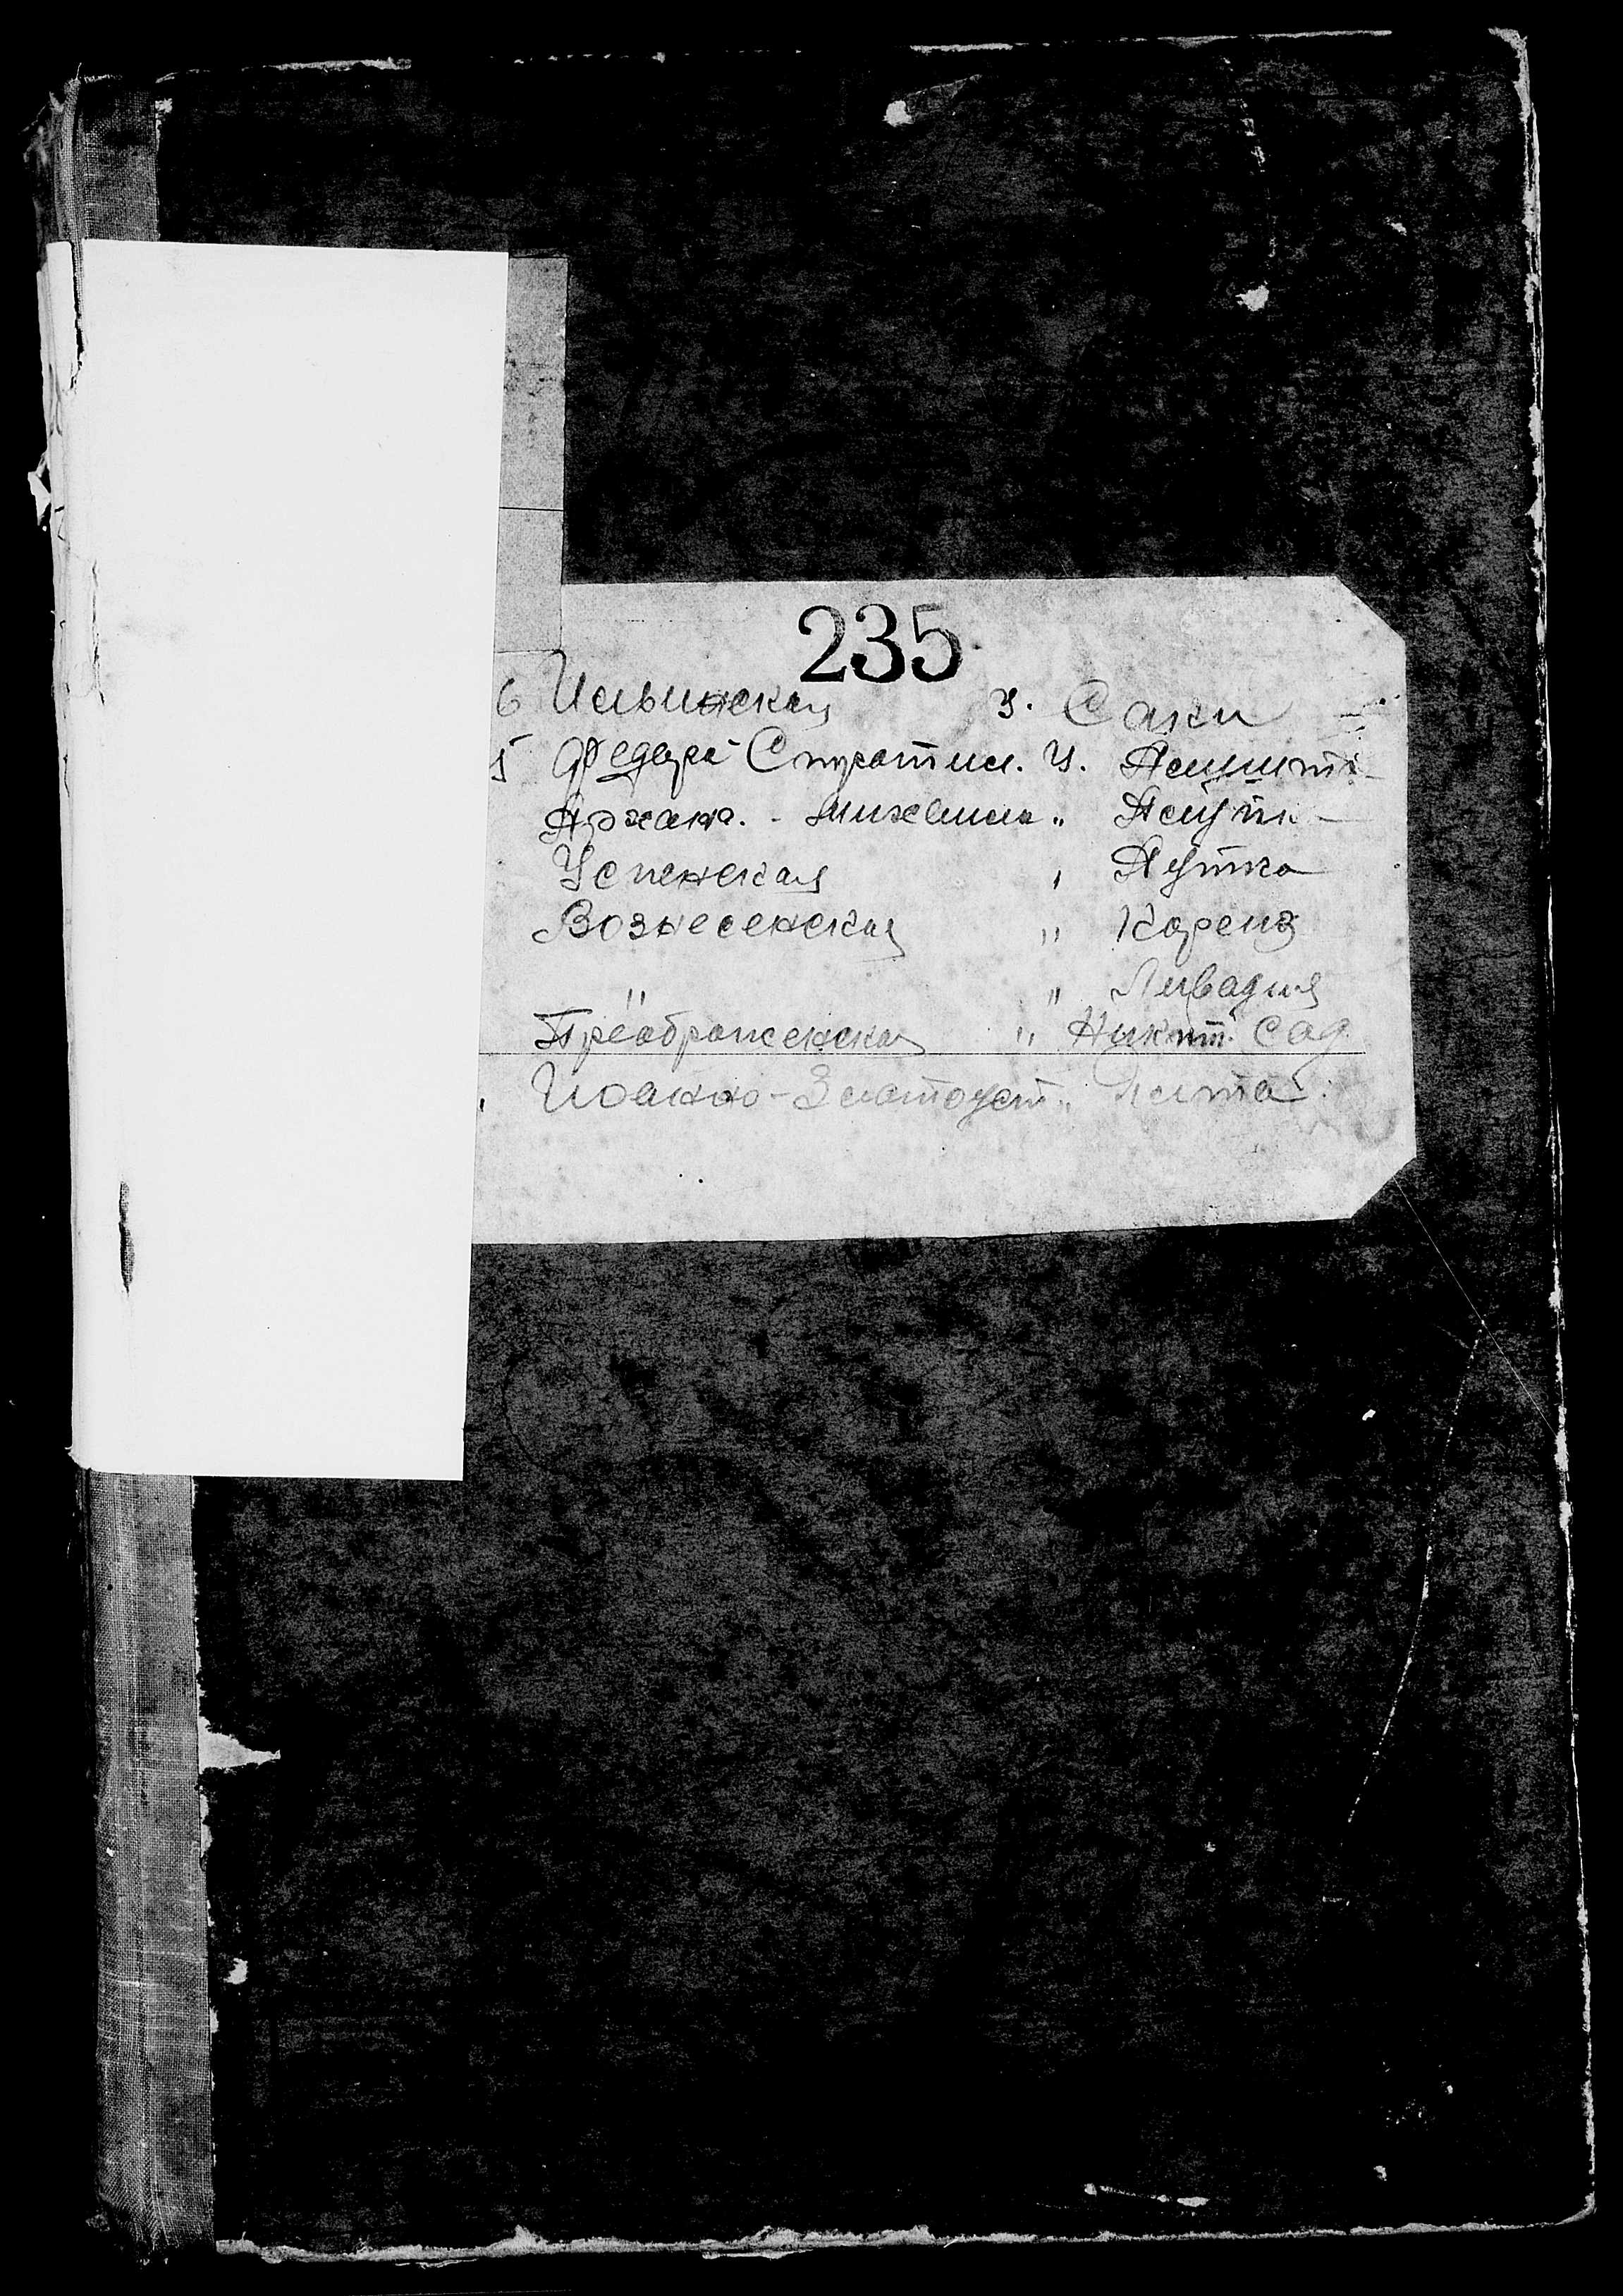 235
6 Ильинская ц. Саки
5 Федора Стратил. ц. Алушта
Архан. - Михаил. "
Успенская " Аутка
Вознесенская " Кореиз
" " Ливадия
Преображенская " Никит. Сад.
Иоанно-Златоуст. " Ялта